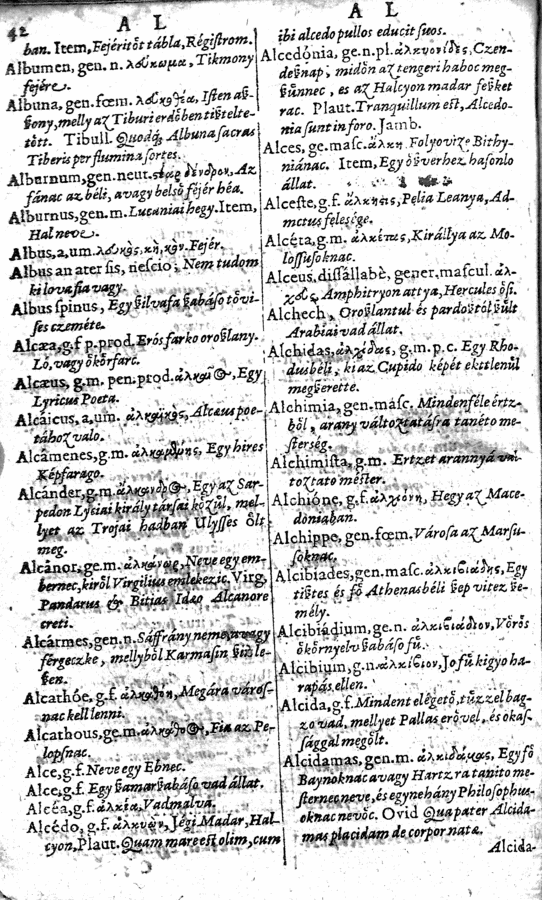 42
A L
ban. Item, Fejéritöt tábla, Régiſtrom.
Albumen, gen. n. λδύκωμα, Tikmony
fejére.
Albuna, gen. fœm. λδυκοθέα, Iſten aſ-
ſzony, melly az Tiburi erdöben tiſztelte-
tött. Tibull. Quodq; Albuna ſacras
Tiberis per flumina ſortes.
Alburnum, gen. neut. Az
fánac az béli, avagy belső fejér héa.
Alburnus, gen. m. Lucaniai hegy. Item,
Hal neve.
Albus, a, um. λδυκὸς, κὴ, κὸν. Fejér.
Albus an ater ſis, neſcio; Nem tudom
ki lova fia vagy.
Albus ſpinus, Egy ſzilvafa ſzabáſo tövi-
ſes czeméte.
Alcæa, g. f. p. prod. Erós farko oroſzlany.
Ló, vagy ökörfarc.
Alcæus, g. m. pen. prod. ἀλκαῖος, Egy
Lyricus Poeta.
Alcáicus, a, um. ἀλκαιικὸς, Alcæus poe-
tához valo.
Alcâmenes, g. m. ἀλκαμένης, Egy hires
Képfarago.
Alcânder, g. m. ἄλκανδρος, Egy az Sar-
pedon Lyciai király társai közül, mel-
lyet az Trojai hadban Ulyſſes ölt
meg.
Alcânor, ge. m. ἀλκάνωρ, Neve egy em-
bernec, kiröl Virgilius emlekezic, Virg,
Pandarus & Bitias Idæo Alcanore
creti.
Alcármes, gen. n. Sáffrány neme, avagy
férgeczke, mellyböl Karmaſin ſzin le-
ſzen.
Alcathóe, g. f. ἀλκαθόη, Megára város-
nac kell lenni.
Alcathous, ge. m. ἀλκάθοος, Fia az Pe-
lopſnac.
Alce, g. f. Neve egy Ebnec.
Alce, g. f. Egy ſzamar ſzabáſo vad állat.
Alcéa, g. f. ἀλκέα, Vadmalva.
Alcédo, g. f. ἀλκυὼν, Jégi Madar, Hal-
cyon, Plaut. Quam mare eſt olim, cum
A L
ibi alcedo pullos educit ſuos.
Alcedónia, ge. n. pl. ἀλκυονίδες, Czen-
deſz nap; midön az tengeri haboc meg-
ſzünnec, es az Halcyon madar feſzket
rac. Plaut. Tranquillum eſt, Alcedo-
nia ſunt in foro. Jamb.
Alces, ge. maſc. ἄλκη, Folyovize Bithy-
niánac. Item, Egy öſzverhez haſonlo
állat.
Alceſte, g. f. ἄλκηςις, Pelia Leanya, Ad-
metus feleſége.
Alcéta, g. m. ἀλκέτας, Királlya az Mo-
loſſuſoknac.
Alceus, diſſállabè, gener. maſcul. ἀλ-
Amphitryon attya, Hercules öſi.
Alchech, Oroſzlantul és pardoſztól ſzült
Arabiai vad állat.
Alchidas, ἀλχίδας, g. m. p. c. Egy Rho-
dusbéli, ki az Cupido képét ekttlenül
megſzerette.
Alchimia, gen. maſc. Mindenféle értz-
böl, arany változtatáſra tanéto me-
ſterség.
Alchimiſta, g. m. Ertzet arannyá vál-
toztato méſter.
Alchióne, g. f. ἀλχιόνη, Hegy az Mace-
doniaban.
Alchippe, gen. fœm. Városa az Marſu-
ſoknac.
Alcibiades, gen. maſc. ἀλκιβιάδης, Egy
tiſztes és fö Athenasbéli ſzep vitez ſze-
mély.
Alcibiádium, ge. n. ἀλκιβιάδιον, Vörös
ökörnyelv ſzabáſo fü.
Alcibium, g. n. ἀλκίβιον, Jo fü kigyo ha-
rapás ellen.
Alcida, g. f. Mindent elégetö, tüzzel bag-
zo vad, mellyet Pallas erövel, és okaſ-
ſággal megölt.
Alcidamas, gen. m. ἀλκιδάμας, Egy fö
Baynoknac avagy Hartzra tanito me-
ſternec neve, és egynehány Philoſophus-
oknac nevöc. Ovid Qua pater Alcida-
mas placidam de corpor natæ.
Alcida-